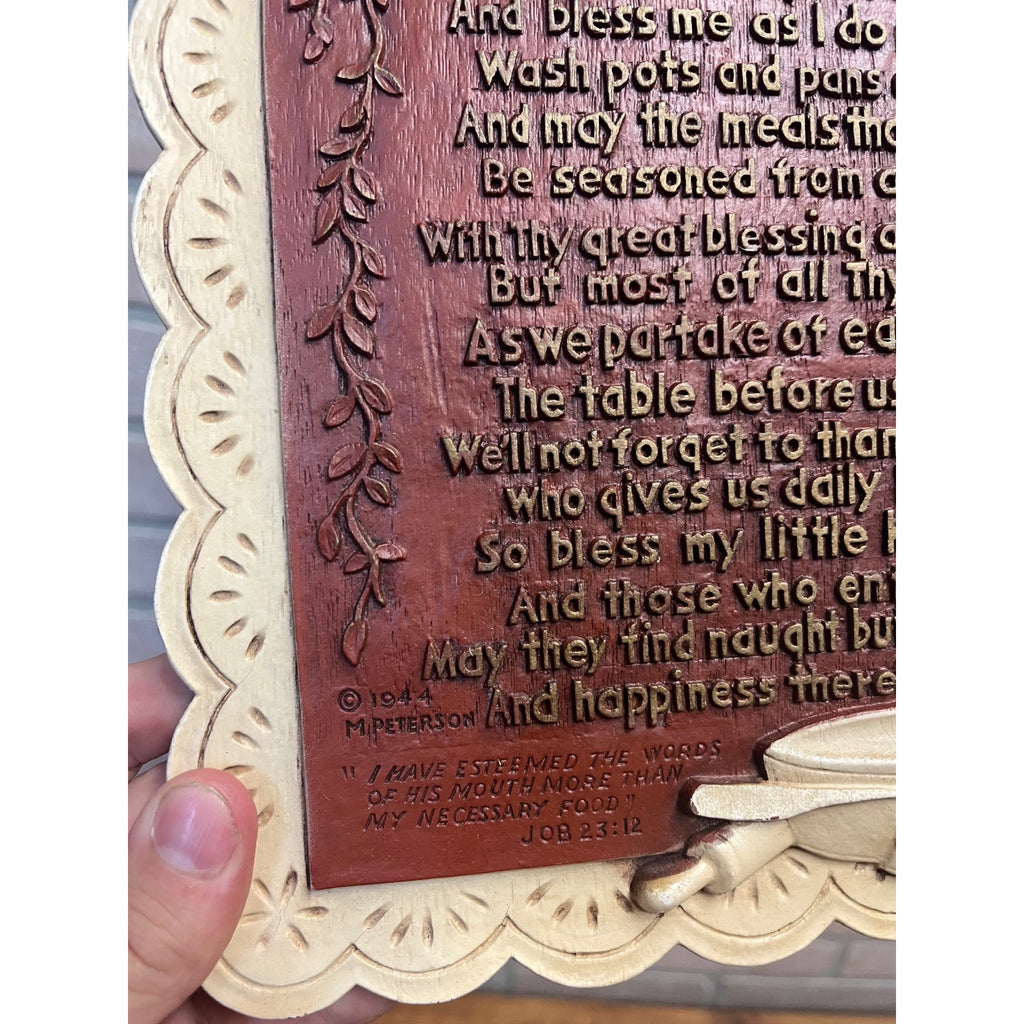 And bless me as I do
Wash pots and pans
And may the meals tha
Be seasoned from a
With Thy great blessing a
But most of all Thy
As we partake of ea
The table before us
We'll not forget to than
Who gives us daily
So bless my little
And those who ent
May they find naught bu
And happiness there
© 1944
M. PETERSON
"I HAVE ESTEEMED THE WORDS
OF HIS MOUTH MORE THAN
MY NECESSARY FOOD"
JOB 23:12